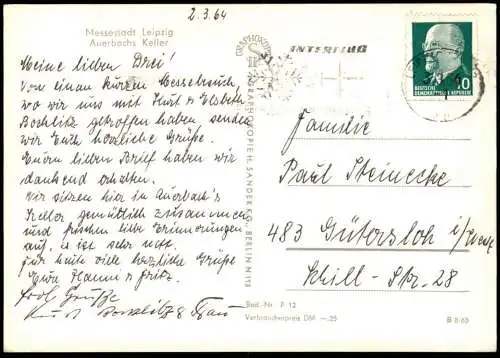 2.3.64
Messestadt Leipzig
Auerbachs Keller
Meine lieben Drei!
Von einem kurzen Messebesuch,
wo wir uns mit Kurt & Elsbeth
getroffen haben senden
wir Euch herzliche Grüße.
Euern lieben Brief haben wir
dankend erhalten.
Wir sitzen hier in Auerbach's
Keller gemütlich zusammen
und frischen liebe Erinnerungen
auf. es ist sehr nett.
Für heute viele herzliche Grüße
Eure Hanni & Fritz.
Grüße
Kurt & Frau
INTERFLUG
DEUTSCHE
DEMOKRATISCHE REPUBLIK
10
Familie
Paul Steinecke
483 Gütersloh i/Westf.
Schill-Str. 28
Best.-Nr. F 12
Verbraucherpreis DM -,25
B 8/63